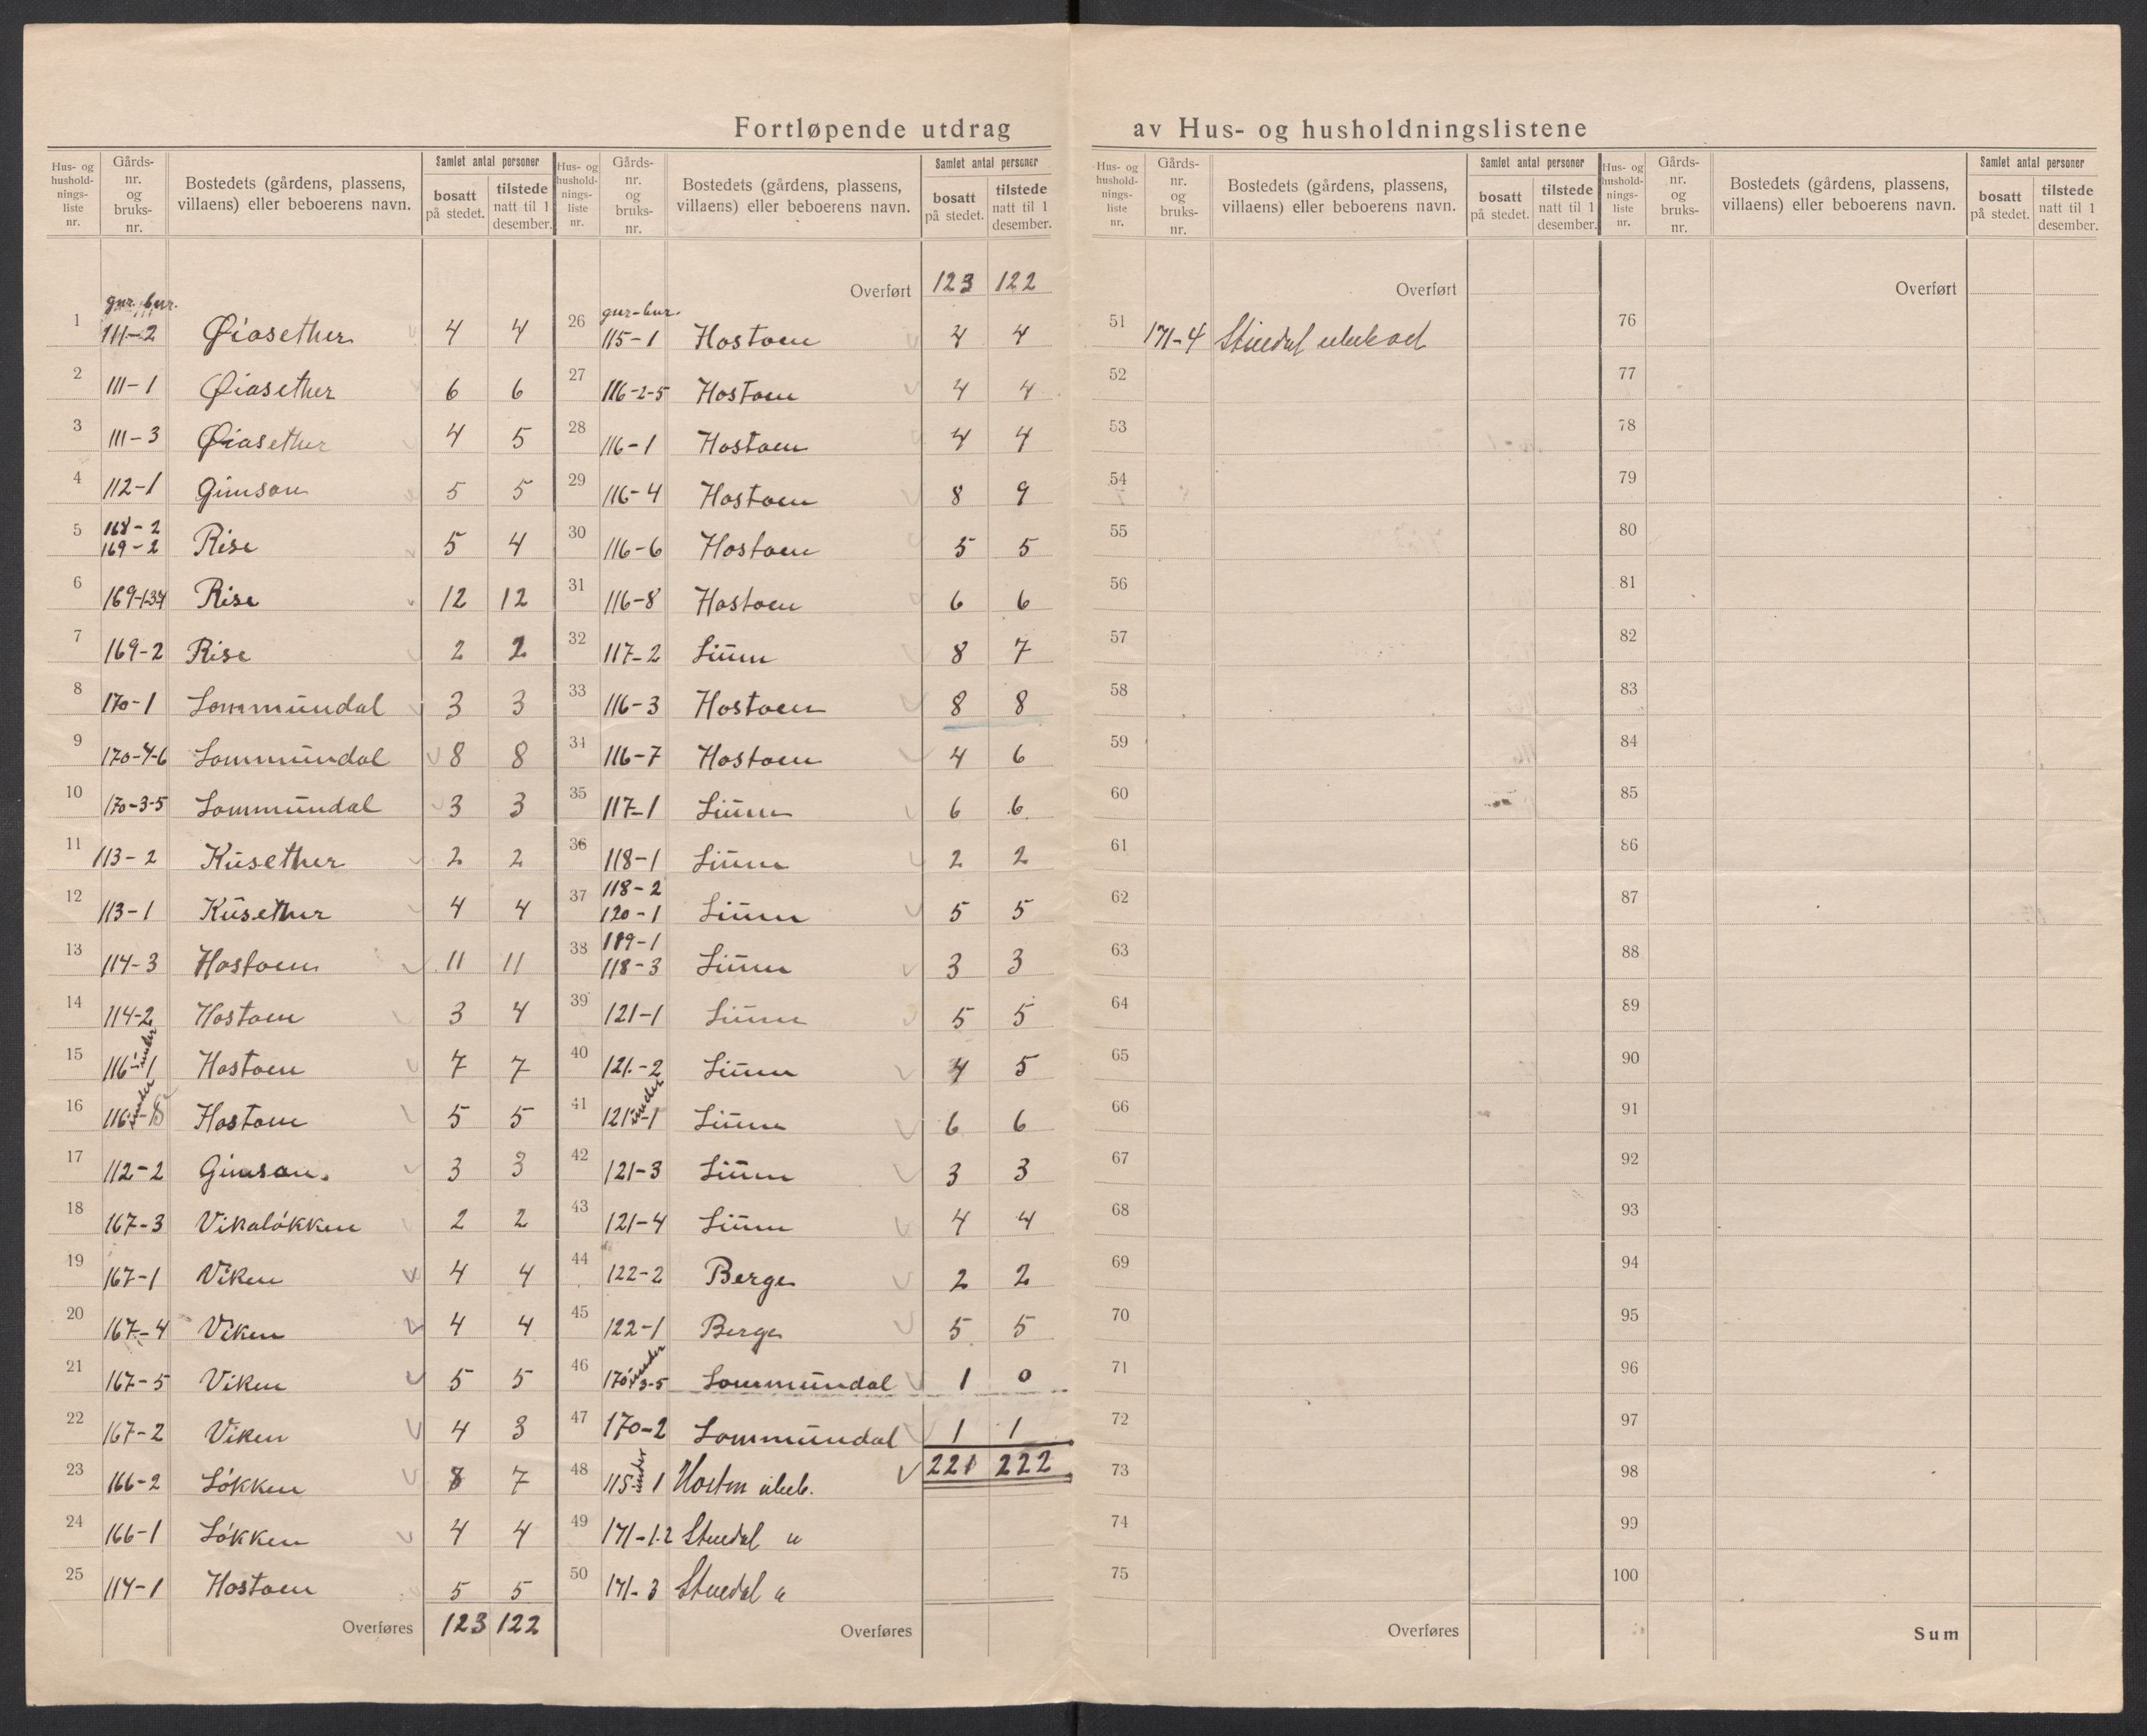 Fortløpende utdrag av Hus- og husholdningslistene
Hus- og hushold- nings- liste nr. | Gårds- nr. og bruks- nr. | Bostedets (gårdens, plassens, villaens) eller beboerens navn. | Samlet antal personer | bosatt på stedet. | tilstede natt til 1 desember.
Hus- og hushold- nings- liste nr. | Gårds- nr. og bruks- nr. | Bostedets (gårdens, plassens, villaens) eller beboerens navn. | Samlet antal personer | bosatt på stedet. | tilstede natt til 1 desember.
gnr. bnr.
1 111-2 Øiasether 4 4
2 111-1 Øiasether 6 6
3 111-3 Øiasether 4 5
4 112-1 Gimsan 5 5
5 168-2 169-2 Rise 5 4
6 169-1-3-4 Rise 12 12
7 169-2 Rise 2 2
8 170-1 Lommundal 3 3
9 170-4-6 Lommundal 8 8
10 170-3-5 Lommundal 3 3
11 113-2 Kusether 2 2
12 113-1 Kusether 4 4
13 114-3 Hostoen 11 11
14 114-2 Hostoen 3 4
15 116 under 1 Hostoen 7 7
16 116 under 8 Hostoen 5 5
17 112-2 Gimsan. 3 3
18 167-3 Vikaløkken 2 2
19 167-1 Viken 4 4
20 167-4 Viken 4 4
21 167-5 Viken 5 5
22 167-2 Viken 4 3
23 166-2 Løkken 8 7
24 166-1 Løkken 4 4
25 114-1 Hostoen 5 5
Overføres 123 122
Overført 123 122
gnr-bnr.
26 115-1 Hostoen 4 4
27 116-2-5 Hostoen 4 4
28 116-1 Hostoen 4 4
29 116-4 Hostoen 8 9
30 116-6 Hostoen 5 5
31 116-8 Hostoen 6 6
32 117-2 Liüm 8 7
33 116-3 Hostoen 8 8
34 116-7 Hostoen 4 6
35 117-1 Liüm 6 6
36 118-1 Liüm 2 2
37 118-2 120-1 Liüm 5 5
38 119-1 118-3 Liüm 3 3
39 121-1 Liüm 5 5
40 121-2 Liüm 4 5
41 121 under 1 Liüm 6 6
42 121-3 Liüm 3 3
43 121-4 Liüm 4 4
44 122-2 Berge 2 2
45 122-1 Berge 5 5
46 170 under 3-5 Lommundal 1 0
47 170-2 Lommundal 1 1
48 115 under 1 Hosten ubeb. 221 222
49 171-1.2 Stuedal u
50 171-3 Stuedal u
Overføres
Hus- og hushold- nings- liste nr. | Gårds- nr. og bruks- nr. | Bostedets (gårdens, plassens, villaens) eller beboerens navn. | Samlet antal personer | bosatt på stedet. | tilstede natt til 1 desember.
Hus- og hushold- nings- liste nr. | Gårds- nr. og bruks- nr. | Bostedets (gårdens, plassens, villaens) eller beboerens navn. | Samlet antal personer | bosatt på stedet. | tilstede natt til 1 desember.
Overført
51 171-4 Stuedal ubebod
52
53
54
55
56
57
58
59
60
61
62
63
64
65
66
67
68
69
70
71
72
73
74
75
Overføres
Overført
76
77
78
79
80
81
82
83
84
85
86
87
88
89
90
91
92
93
94
95
96
97
98
99
100
Sum